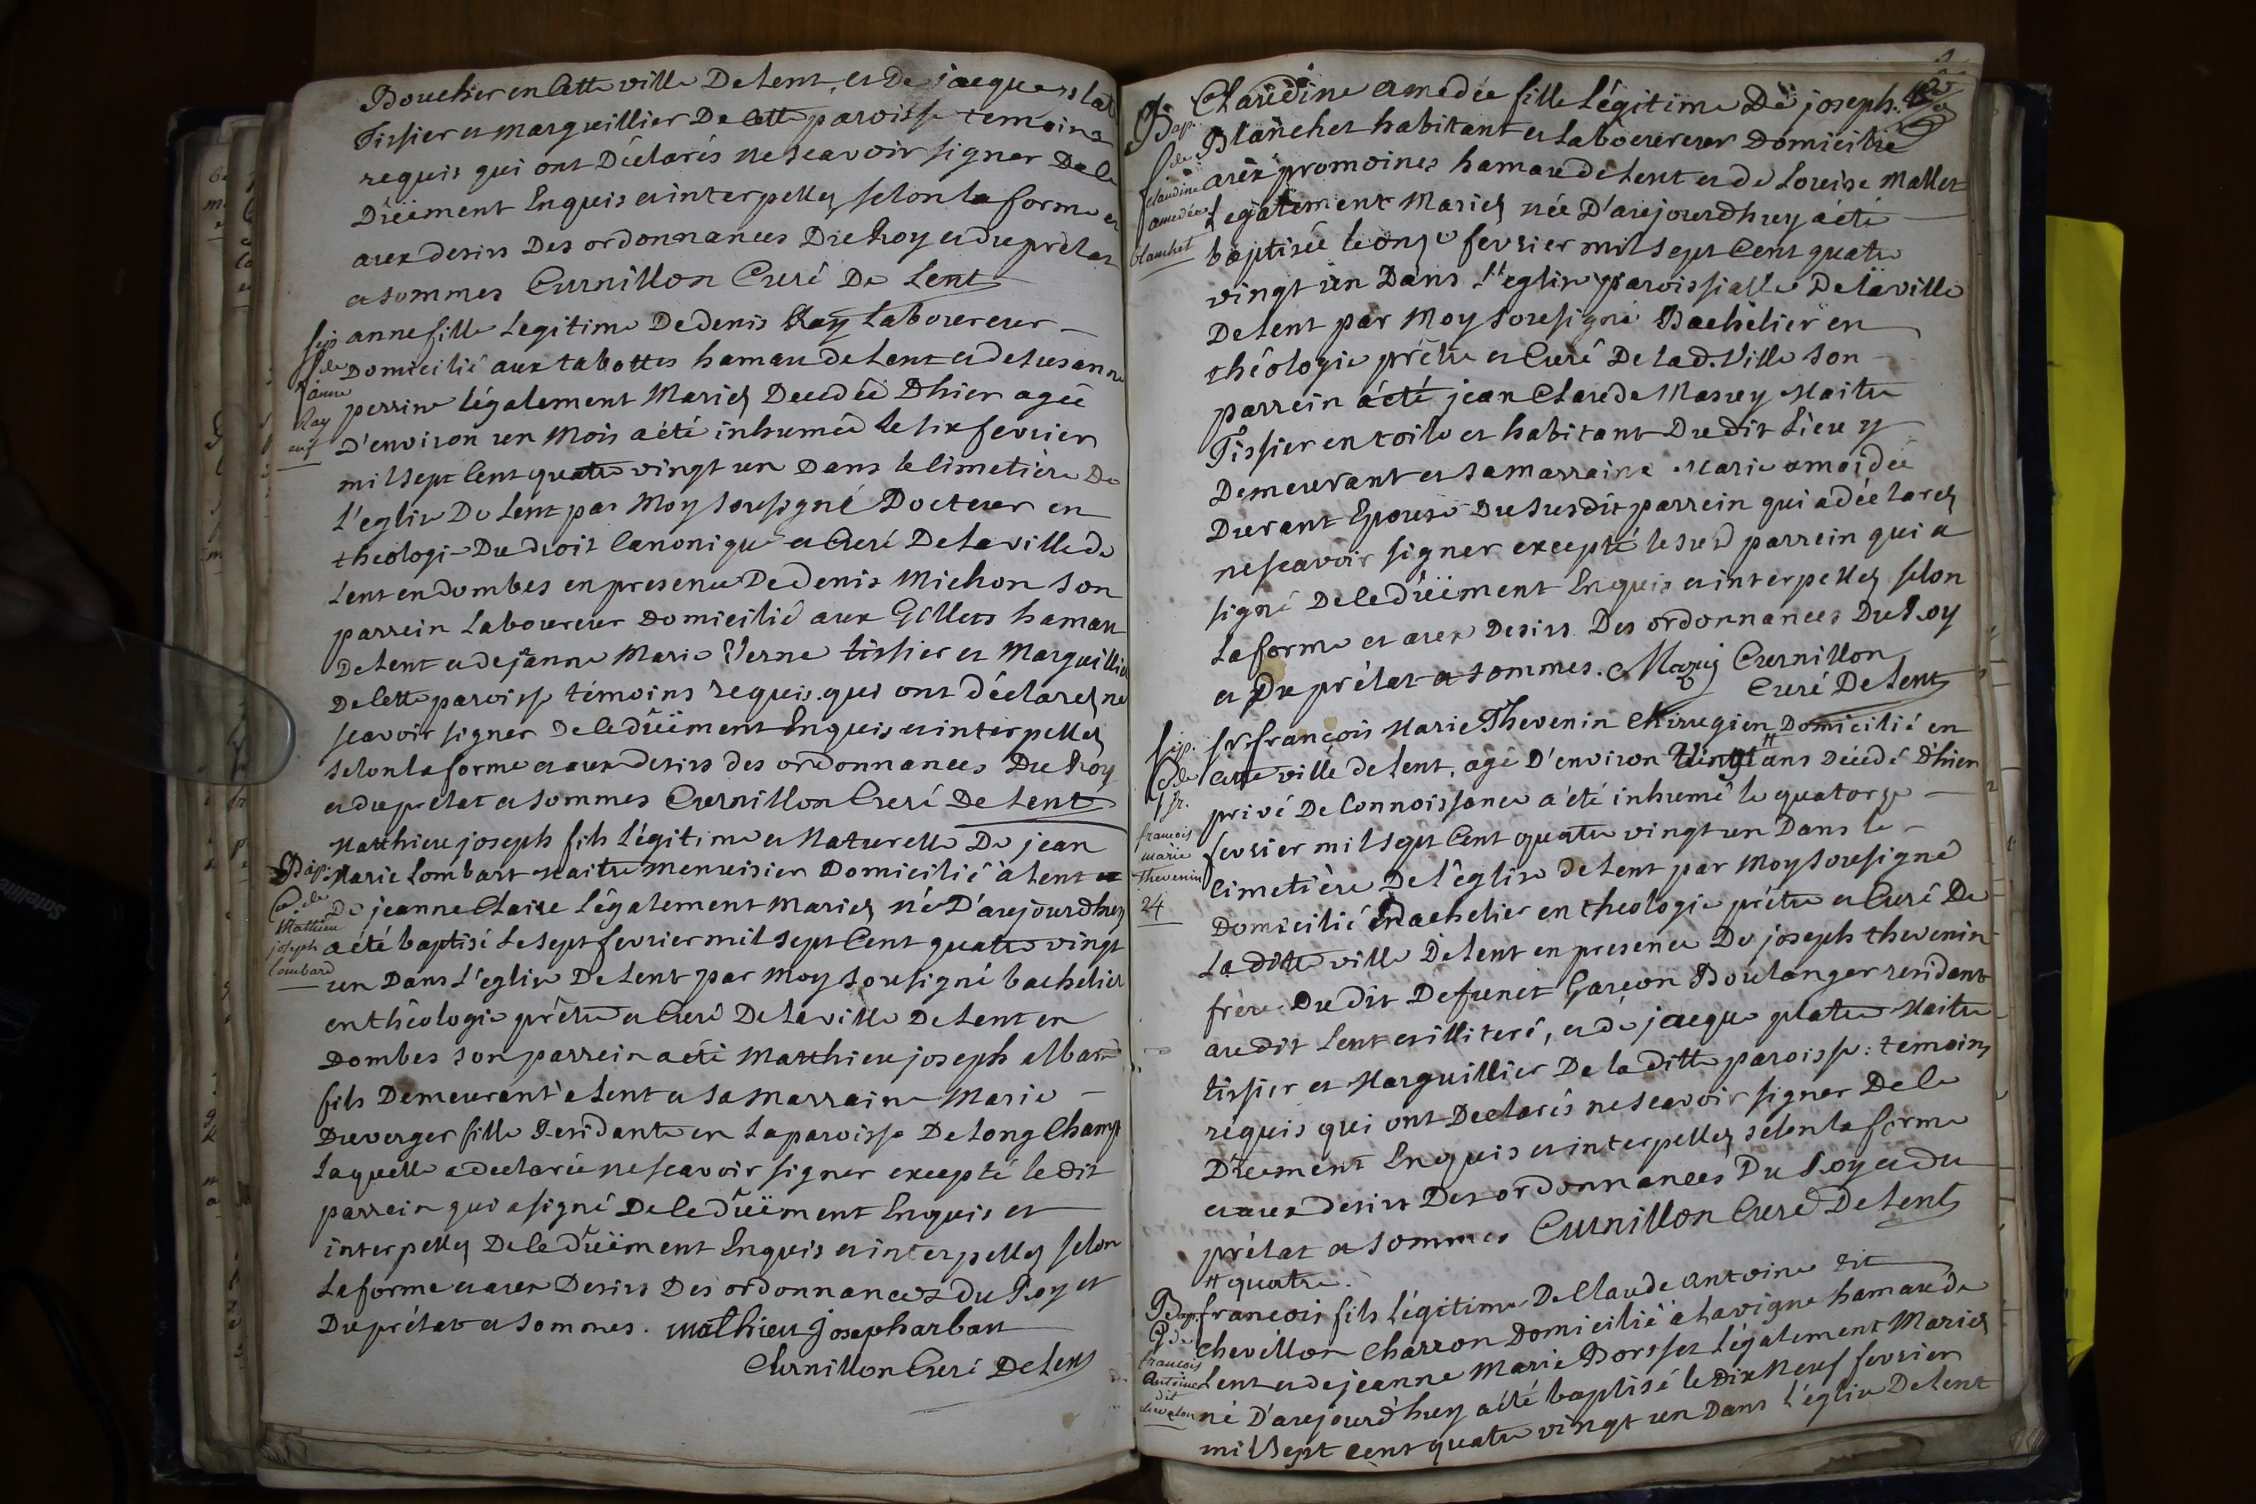 Boucher en cette ville De Lent, et De jacques
Tissier et marguillier De cette paroisse temoins
requis qui ont Déclarés ne scavoir signer De le
Düëment Enquis et interpellez selon la forme et
aux desirs Des ordonnances Du Roy et du prélat
et sommes Curnillon Curé De Lent
sep
de
anne
Ray
anne fille Legitime De denis Ray Laboureur
Domicilié aux tabottes hamau de Lent et de susanne
perrine légalement Mariez Decedée D'hier agée
D'environ un Mois a été inhumée Le six fevrier
mil sept Cent quatre vingt un Dans le cimetière De
L'eglise De Lent par Moy soussigné Docteur en
theologie Du droit Canonique et Curé De la ville de
Lent en dombes en presence De denis Michon son
parrein Laboureur Domicilié aux Gillets hamau
De Lent et de jeanne Marie Verne tissier et Marguillier
De cette paroisse témoins requis qui ont déclarez ne
scavoir signer De le düëment Enquis et interpellez
selon la forme et aux desirs des ordonnances Du Roy
et du prélat et sommes Curnillon Curé De Lent
Bap:
de
Mathieu
joseph
lombard
Matthieu joseph fils Légitime et Naturelle De jean
Marie Lombart Maitre menuisier Domicilié à Lent et
De jeanne Claire Légalement mariez né D'aujourd'huy
a été baptisé Le sept fevrier mil sept Cent quatre vingt
un Dans L'eglise De Lent par Moy soussigné bachelier
en théologie prêtre et Curé De la ville De Lent en
Dombes son parrein a été Matthieu joseph alban
fils Demeurant a Lent et sa Marraine Marie
Duverger fille Residante en La paroisse De Long Champ
Laquelle a declarée ne scavoir signer excepté le dit
parrein qui a signé De le düëment Enquis et
interpellez De le düëment Enquis et interpellez selon
La forme et aux Desirs Des ordonnances du Roy et
Du prélat et sommes. mathieu joseph arban
Curnillon Curé De Lent
Bap.
de
claudine
amedée
blanchet
Claudine amedée fille Légitime De joseph
Blanchet habitant et Laboureur Domicilié
aux promoines hamau de Lent et de Louise Mallet
Légalement Mariez née D'aujourd'huy a été
baptisée le onze fevrier mil sept Cent quatre
vingt un Dans L'eglise paroissialle De la ville
De Lent par Moy soussigné Bachelier en
théologie prêtre et Curé De lad. Ville son
parrein a été jean Claude Mazuy Maitre
Tissier en toile et habitant Du dit Lieu y
Demeurant et sa marraine Marie amoidée
Durant Epouse Du susdit parrein qui a déclarez
ne scavoir signer excepté le susd parrein qui a
signé De le düëment Enquis et interpellez selon
La forme et aux Desirs Des ordonnances Du Roy
et Du prélat et sommes. Mazuy Curnillon
Curé De Lent
sep.
de
sr.
francois
marie
Thevenin
24
sr. françois Marie Thevenin Chirugien Domicilié en
cette ville de Lent, agé D'environ vingt # ans Décédé D'hier
privé De Connoissance a été inhumé le quatorze
fevrier mil sept Cent quatre vingt un Dans le
Cimetière De l'église de Lent par Moy soussigné
Domicilié Bachelier en theologie prétre et Curé De
La ditte ville De Lent en presence De joseph thevenin
frère Du dit Defunct Garçon Boulanger residant
au dit Lent et illiteré, et de jacque platre Maitre
tissier et Marguillier De la ditte paroisse: temoins
requis qui ont Declarés ne scavoir signer De le
Düement Enquis et interpellez selon la forme
et aux desirs Des ordonnances Du Roy et du
prélat et sommes Curnillon Curé De Lent
# quatre.
Bap.
de
francois
Antoine
dit
chevelon
francois fils légitime De Claude Antoine dit
chevéllon Charron Domicilié a Lavigne hamau de
Lent et de jeanne Marie Borsset Légalement Mariez
né D'aujourd'huy a été baptisé le dix Neuf fevrier
mil Sept cent quatre vingt un Dans l'église De Lent